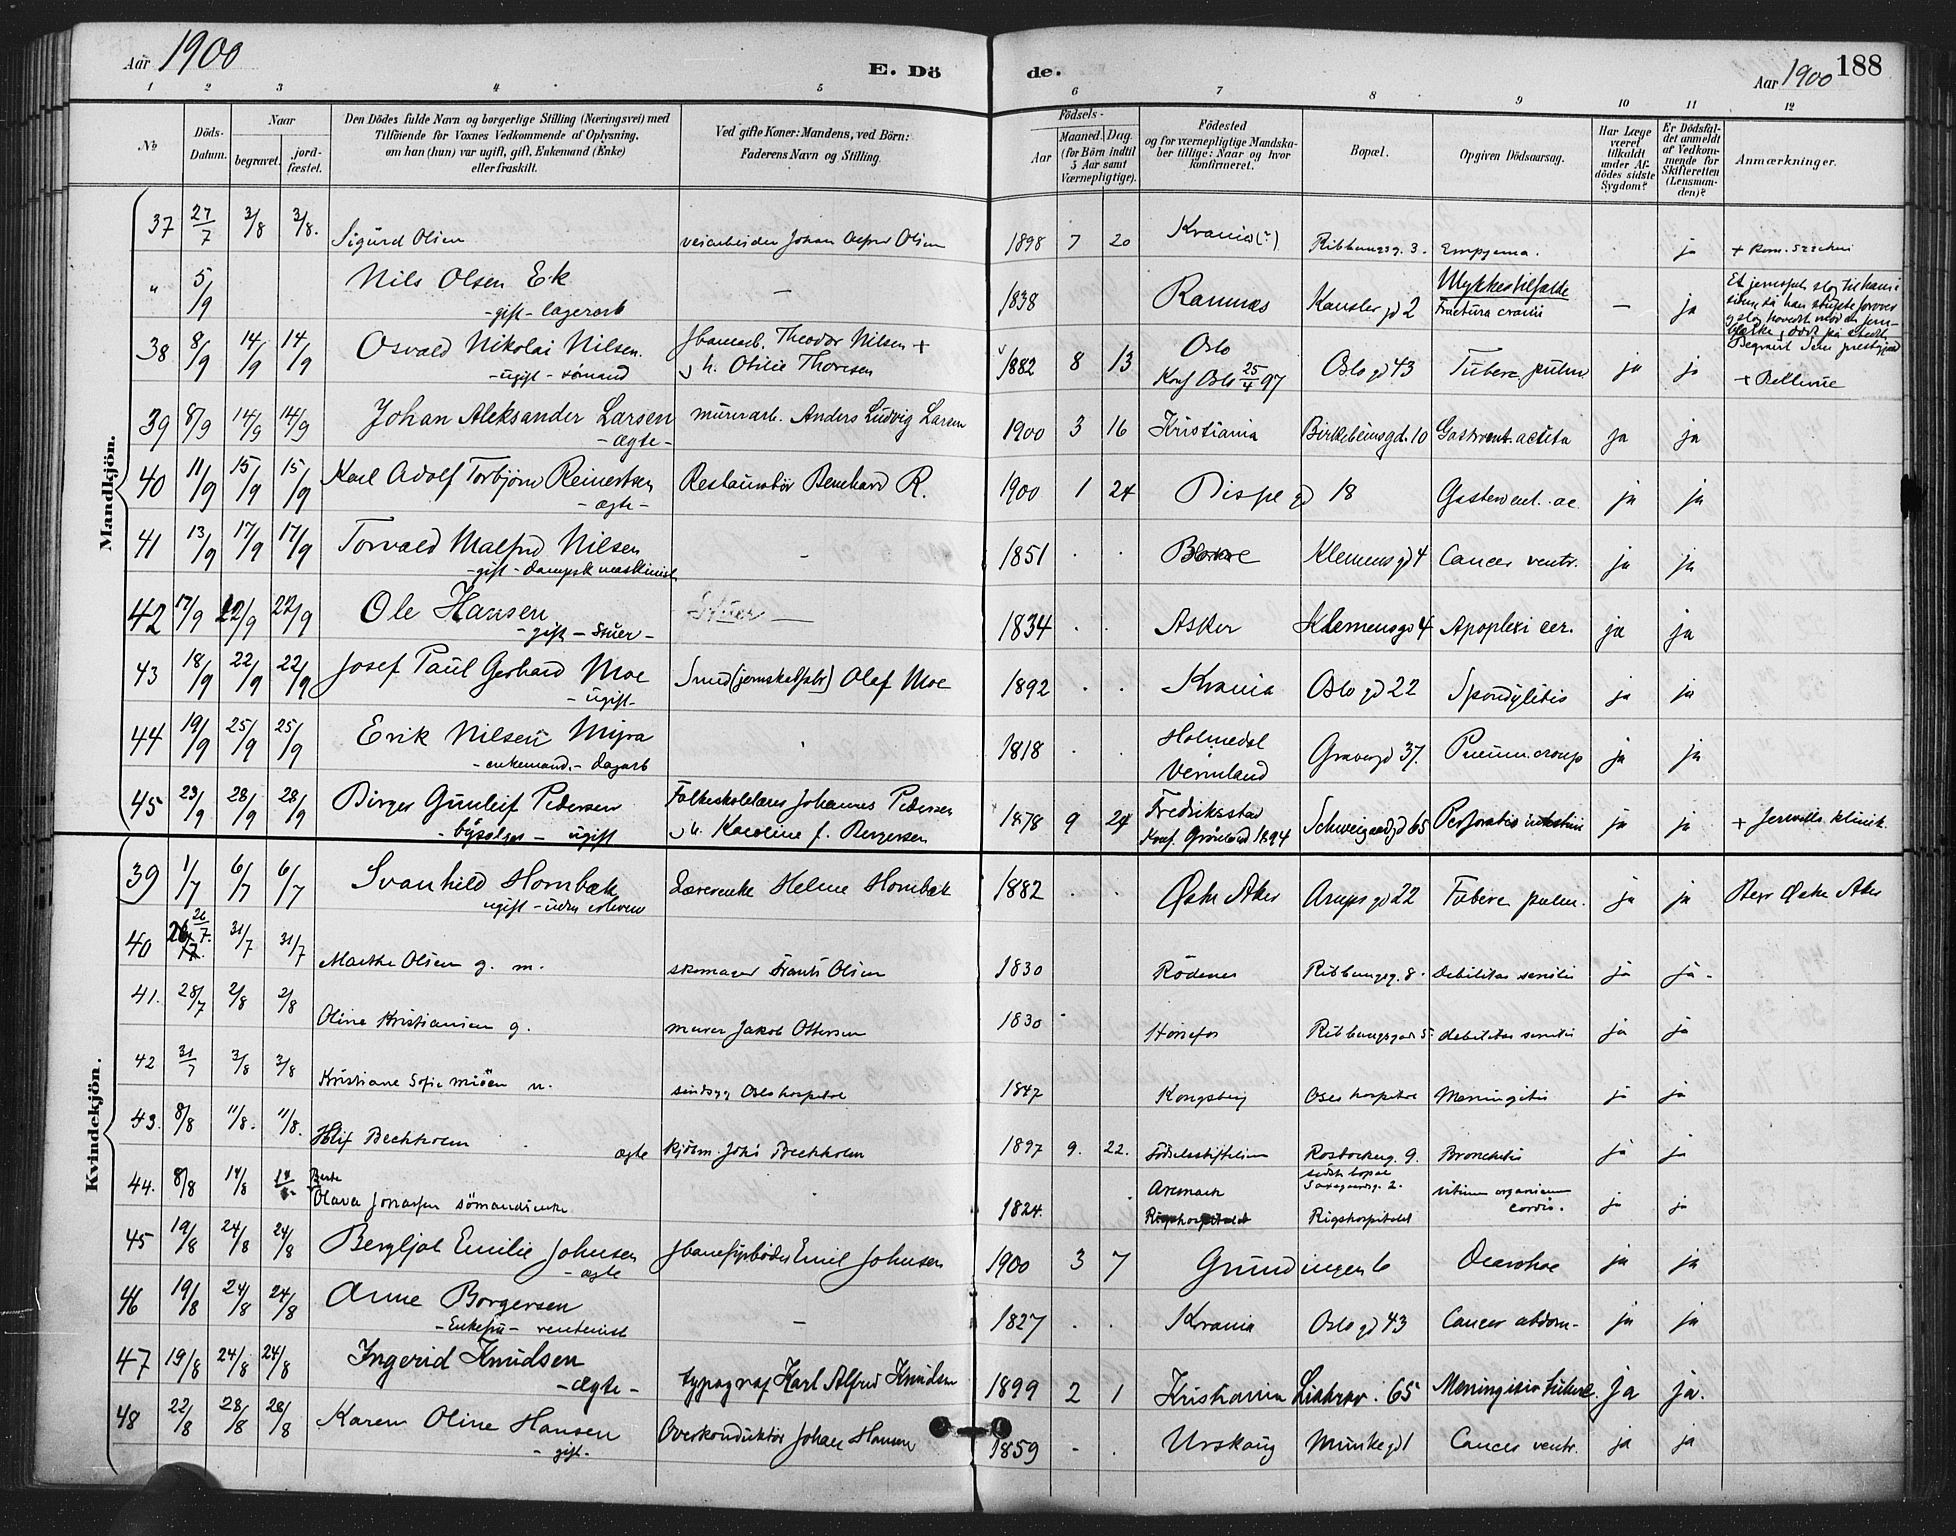 Aar 1900
E. Dö
de.
Aar 1900
188
1 2 3 4 5 6 7 8 9 10 11 12
No
Döds-
Datum.
Naar
begravet.
jord-
fæstet.
Den Dödes fulde Navn og borgerlige Stilling (Næringsvei) med
Tilföiende for Voxnes Vedkommende af Oplysning,
om han (hun) var ugift, gift, Enkemand (Enke)
eller fraskilt.
Ved gifte Koner: Mandens, ved Börn:
Faderens Navn og Stilling.
Födsels-
Aar
Maaned. Dag.
(for Börn indtil
5 Aar samt
Værnepligtige).
Födested
og for værnepligtige Mandska-
ber tillige: Naar og hvor
konfirmeret.
Bopæl.
Opgiven Dödsaarsag.
Har Læge
været
tilkaldt
under Af-
dödes sidste
Sygdom?
Er Dödsfal-
det anmeldt
af Vedkom-
mende for
Skifteretten
(Lensman-
den)?
Anmærkninger.
Mandkjön.
37 27/7 3/8 3/8. Sigurd Olsen veiarbeider Johan Olsen 1898 7 20 Krania (?) Ribbungsg. 3. Empyema. ja
" 5/9 Nils Olsen Ek — 1838 Ramnæs Kanslergd 2 Ulykkestilfælde — ja
- gift - lagerarb Fractura cranii
38 8/9 14/9 14/9 Osvald Nikolai Nilsen. Jbanearb. Theodor Nilsen + 1882 8 13 Oslo Oslogd 43 Tuberc pulm. ja ja + Bellevue
- ugift - sömand h. Otilie Thoresen Konf Oslo 25/4 97
39 8/9 14/9 14/9 Johan Aleksander Larsen murerarb. Anders Ludvig Larsen 1900 3 16 Kristiania Birkebeinsgd. 10 Gastroent. acuta ja ja
- ægte -
40 11/9 15/9 15/9 Karl Adolf Torbjörn Reinertsen Restauratör Bernhard R. 1900 1 24 Bispegd 18 Gastroent. ac. ja ja
- ægte -
41 13/9 17/9 17/9 Torvald Malfred Nilsen - 1851 . . Borre Klemensgd 4 Cancer ventr. ja ja
- gift - dampsk maskinist
42 17/9 22/9 22/9 Ole Hansen Stuer — 1834 . . Asker Klemensgd 4 Apoplexi cer. ja ja
- gift - stuer -
43 18/9 22/9 22/9 Josef Paul Gerhard Moe Smed (jernskabfabr) Olaf Moe 1892 . . Krania Oslogd 22 Spondylitis ja ja
- ugift -
44 19/9 25/9 25/9 Erik Nilsen Myra 1818 . . Holmedal Gravergd 37. Pneum. croup ja ja
- enkemand. - dagarb Vermland
45 23/9 28/9 28/9 Birger Gunleif Pedersen Folkeskolelærer Johannes Pedersen 1878 9 24 Fredriksstad Schweigaardgd 65 Perforatio intestini ja ja + Jervells klinik
- ugift h. Karoline f. Bergersen Konf. Grönland 1894
Kvindekjön.
39 1/7 6/7 6/7 Svanhild Hornbæk Lærerenke Helene Hornbæk 1882 . . Østre Aker Arupsgd 22 Tuberc pulm. ja ja Begr Østre Aker
ugift - uden erhverv
40 26/7. 31/7 31/7 Marthe Olsen g. m. skomager Frants Olsen 1830 Rödenes Ribbungsg. 8. Debilitas senilis ja ja -
41. 28/7 2/8 2/8 Oline Kristiansen g. murer Jakob Ottersen 1830 Hönefos Ribbungsgad 5. debilitas senilis ja ja
42 31/7 3/8 3/8 Kristiane Sofie u. sindsyg Oslo hospital 1847 Kongsberg Oslo hospital Meningitis ja ja
43. 8/8 11/8. 11/8. Bechholm ægte Bechholm 1897 9. 22. Födselsstiftelsen Rostockerg. 9. Bronchitis ja ja
44. 8/8 14/8 Berte Olava Jonassen sömandsenke 1824. Aremark sidste bopæl Saxegaardsg. 2. vitium organicum cordis. ja ja
Rigshospitalet Rigshospitalet
45 19/8 24/8 24/8 Bergljot Emilie Johnsen Jbanefyrböder Emil Johnsen 1900 3 7 Grundingen 6 Diarrhoe ja ja
- ægte
46 19/8 24/8 24/8 Anne Borgersen — 1827 . . Krania Oslogd 43 Cancer abdom- ja ja
- Enkefru - rentenist
47 19/8 24/8 24/8 Ingerid Knudsen typograf Karl Alfred Knudsen 1899 2 1 Kristiania Liakrov. 65 Meningitis tuberc. ja ja.
- Ægte -
48 22/8 28/8 28/8 Karen Oline Hansen Overkonduktör Johan Hansen 1859 . . Urskoug Munkegd 1 Cancer ventr. ja ja
- gift -